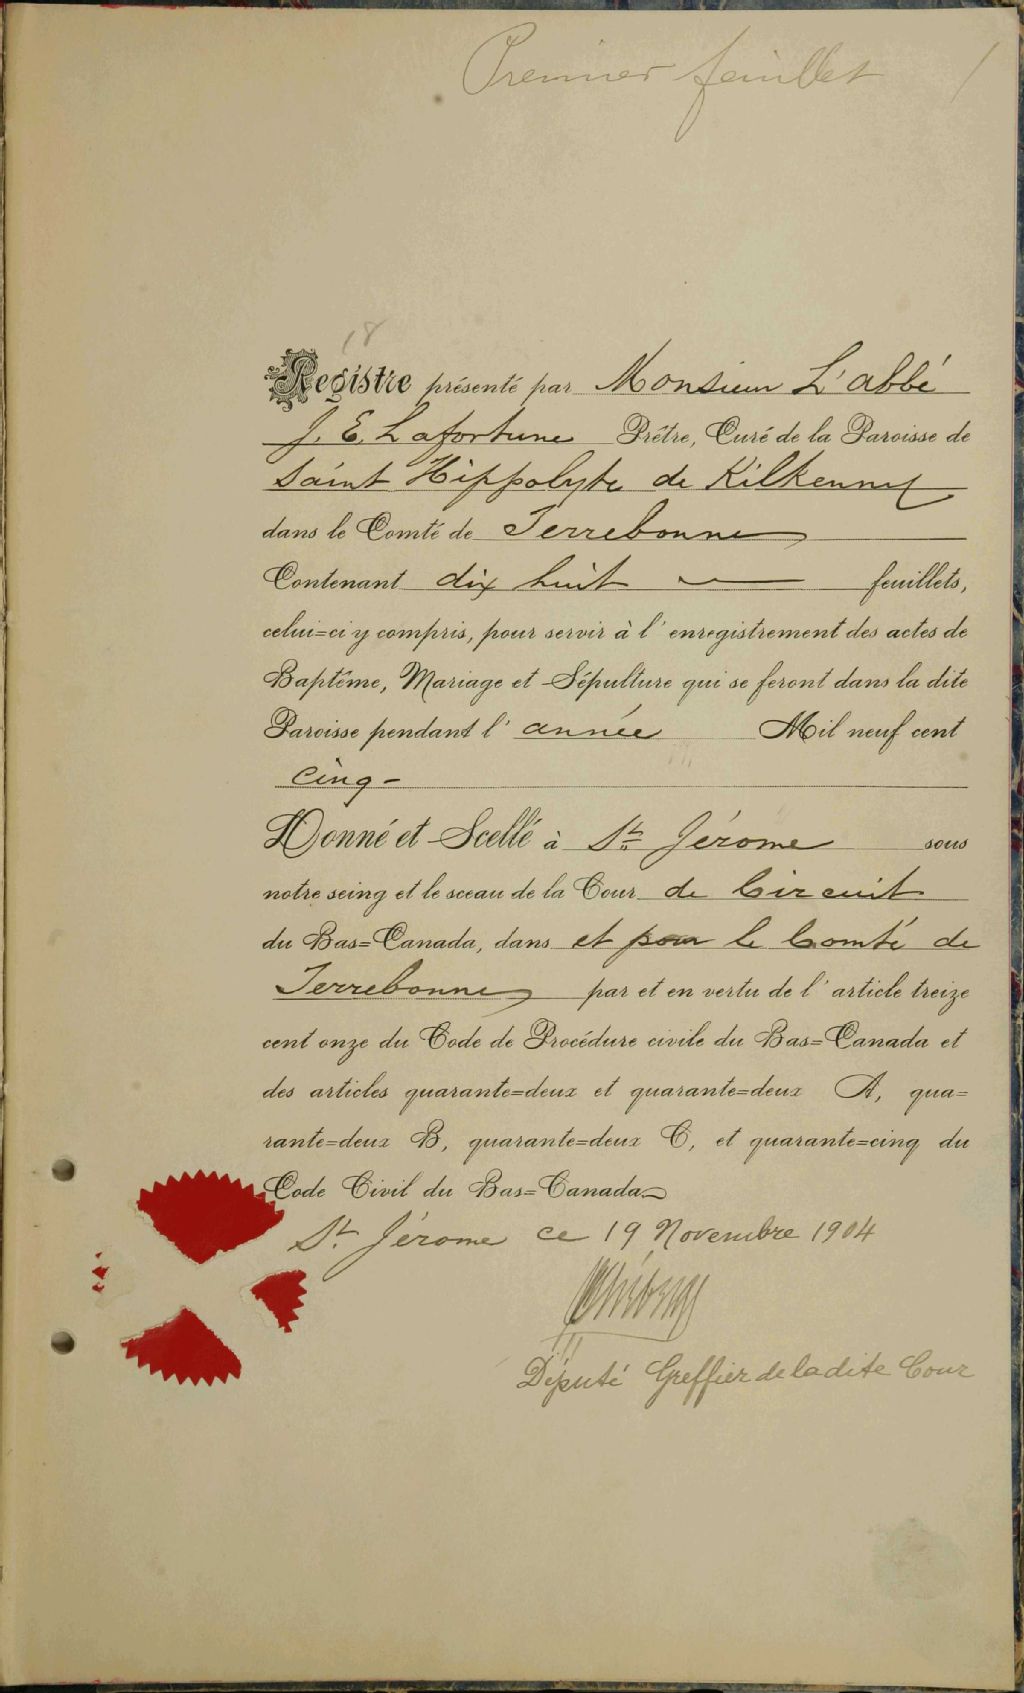 Premier feuillet 1
18
Registre présenté par Monsieur L'abbé
J. E. Lafortune Prêtre, Curé de la Paroisse de
Saint Hippolyte de Kilkenny
dans le Comté de Terrebonne
Contenant dix huit feuillets,
celui=ci y compris, pour servir à l'enregistrement des actes de
Baptême, Mariage et Sépulture qui se feront dans la dite
Paroisse pendant l'année Mil neuf cent
cinq -
Donné et Scellé à St. Jérome sous
notre seing et le sceau de la Cour de Circuit
du Bas=Canada, dans et pour le Comté de
Terrebonne par et en vertu de l'article treize
cent onze du Code de Procédure civile du Bas=Canada et
des articles quarante=deux et quarante=deux A, qua=
rante=deux B, quarante=deux C, et quarante=cinq du
Code Civil du Bas=Canada
St. Jérome ce 19 Novembre 1904
Député Greffier de la dite Cour